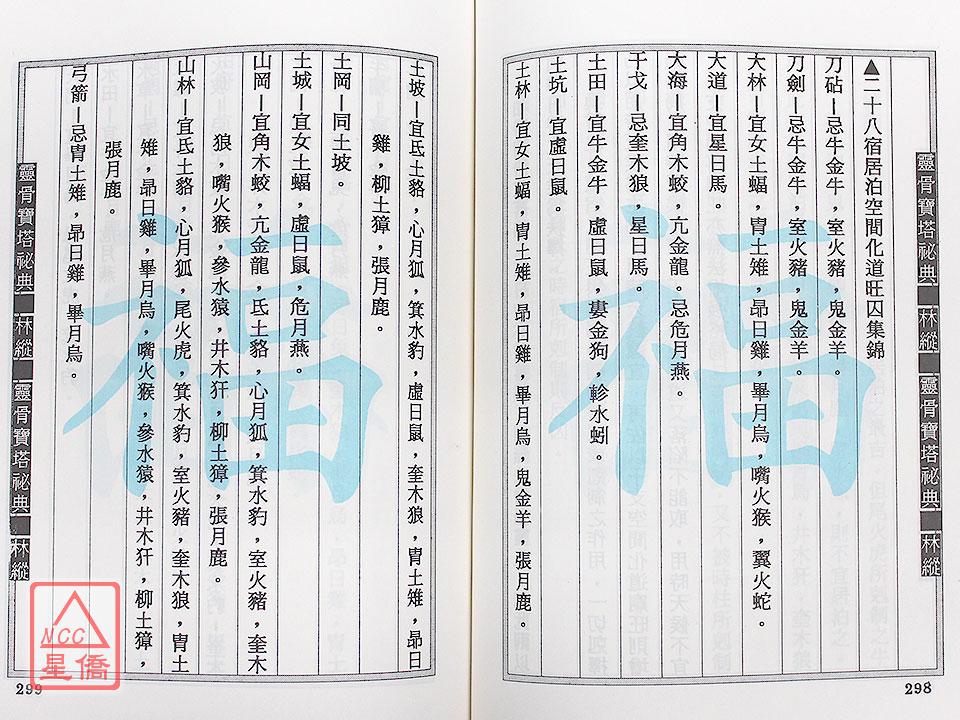 ▲二十八宿居泊空間化道旺囚集錦
刀砧—忌牛金牛，室火豬，鬼金羊。
刀劍—忌牛金牛，室火豬，鬼金羊。
大林—宜女土蝠，胃土雉，昴日雞，畢月烏，嘴火猴，翼火蛇。
大道—宜星日馬。
大海—宜角木蛟，亢金龍。忌危月燕。
干戈—忌奎木狼，星日馬。
土田—宜牛金牛，虛日鼠，婁金狗，軫水蚓。
土坑—宜虛日鼠。
土林—宜女土蝠，胃土雉，昴日雞，畢月烏，鬼金羊，張月鹿。
靈骨寶塔祕典 林縱 靈骨寶塔祕典 林縱
298
土坡—宜氐土貉，心月狐，箕水豹，虛日鼠，奎木狼，胃土雉，昴日
雞，柳土獐，張月鹿。
土岡—同土坡。
土城—宜女土蝠，虛日鼠，危月燕。
山岡—宜角木蛟，亢金龍，氐土貉，心月狐，箕水豹，室火豬，奎木
狼，嘴火猴，參水猿，井木犴，柳土獐，張月鹿。
山林—宜氐土貉，心月狐，尾火虎，箕水豹，室火豬，奎木狼，胃土
雉，昴日雞，畢月烏，嘴火猴，參水猿，井木犴，柳土獐，
張月鹿。
弓箭—忌胃土雉，昴日雞，畢月烏。
靈骨寶塔祕典 林縱 靈骨寶塔祕典 林縱
299
福
福
NCC
星僑